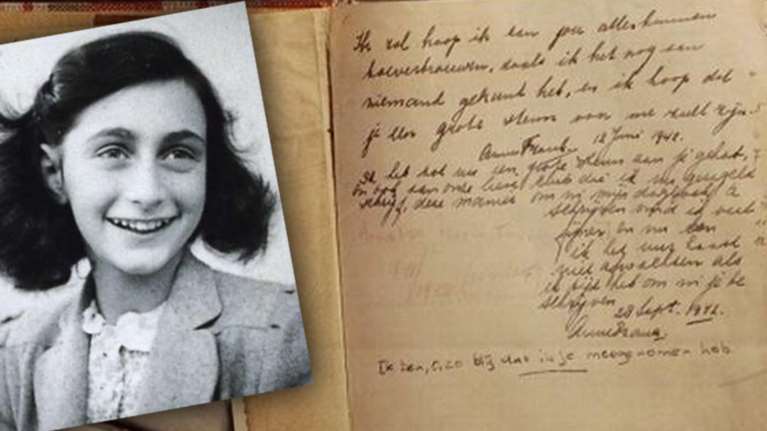 Ik zal hoop ik aan jou alles kunnen
toevertrouwen, zoals ik het nog aan
niemand gekund heb, en ik hoop dat
je een grote steun voor me zult zijn.
Anne Frank. 12 Juni 1942.
Ik heb tot nu een grote steun aan je gehad,
en ook aan onze lieve club die ik nu geregeld
schrijf, deze manier om in mijn dagboek te
schrijven vind ik veel
fijner en nu kan
ik het uur haast
niet afwachten als
ik tijd heb om in je te
schrijven
28 Sept. 1942.
Anne Frank.
Ik ben, o, zo blij dat ik je meegenomen heb